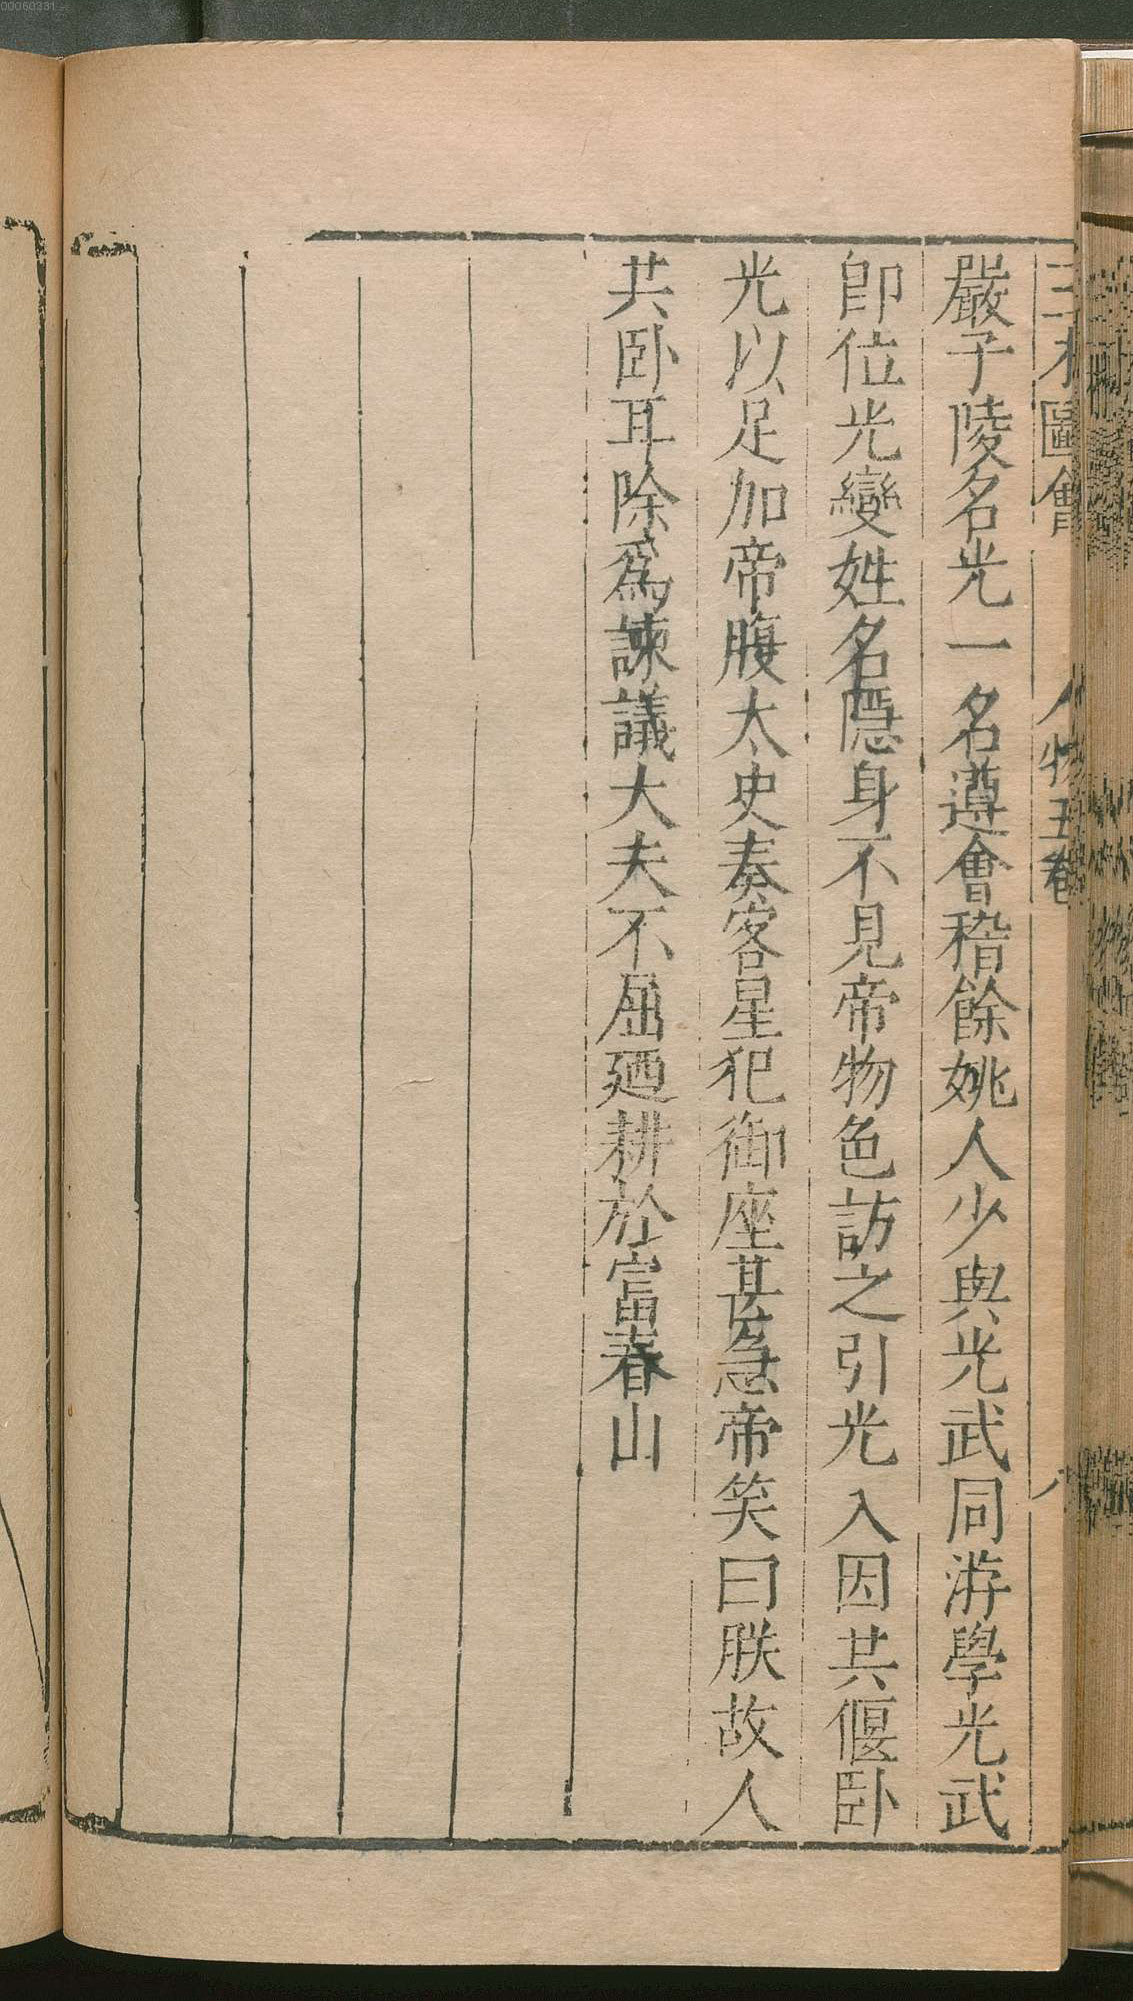 00060331
三才圖會 人物五卷 六
嚴子陵名光一名遵會稽餘姚人少與光武同游學光武
卽位光變姓名隱身不見帝物色訪之引光入因共偃卧
光以足加帝腹太史奏客星犯御座甚急帝笑曰朕故人
共卧耳除爲諫議大夫不屈廼耕於富春山